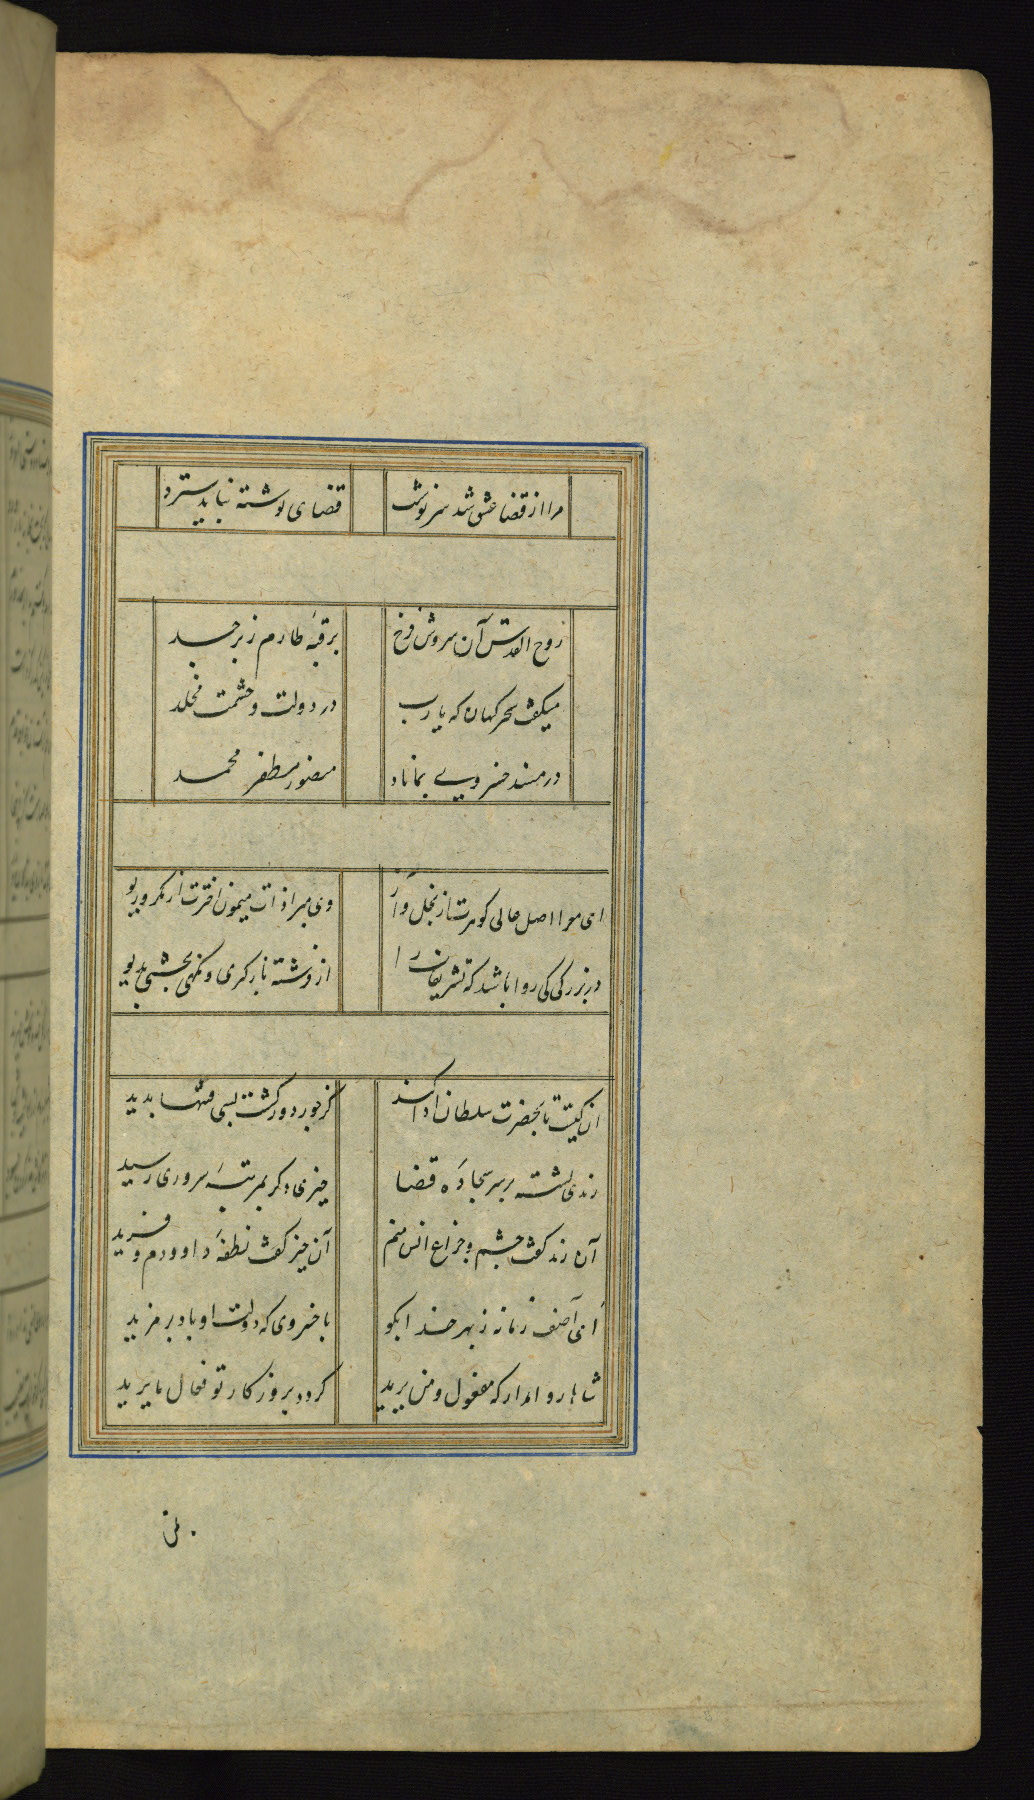 مرا از قضا عشق شد سرنوشت قضای نوشته نباید سترد
روح القدس آن سروش فرخ بر قبهٔ طارم زبرجد
میکفت سحرکهان که یا رب در دولت و حشمت مخلد
در مسند خسروی بماناد منصور مظفر محمد
ای معرا اصل عالی کوهرت از بخل و آز وی مبرا ذات میمون اخترت از مکر و ریو
در بزرکی کی روا باشد که تشریفات را از فرشته بازکری و آنکهی بخشی بدیو
آن کیست تا بحضرت سلطان ادا کند کز جور دور کشت بسی فتنها بدید
رندی نشسته بر سر سجادهٔ قضا حیزی دکر بمرتبهٔ سروری رسید
آن رند کفت چشم و چراغ انس منم آن حیز کفت نطفهٔ داوودم و فرید
ای آصف زمانه ز بهر خدا بکو با خسروی که دولت او باد بر مزید
شاها روا مدار که مفعول من یرید کردد بروزکار تو فعال ما یرید